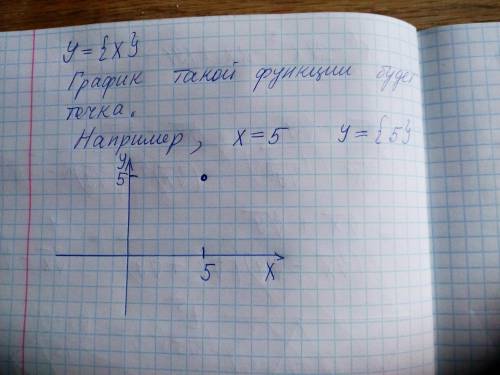 y = {x}
График такой функции будет
точка.
Например, x = 5 y = {5}
y
5
5
x